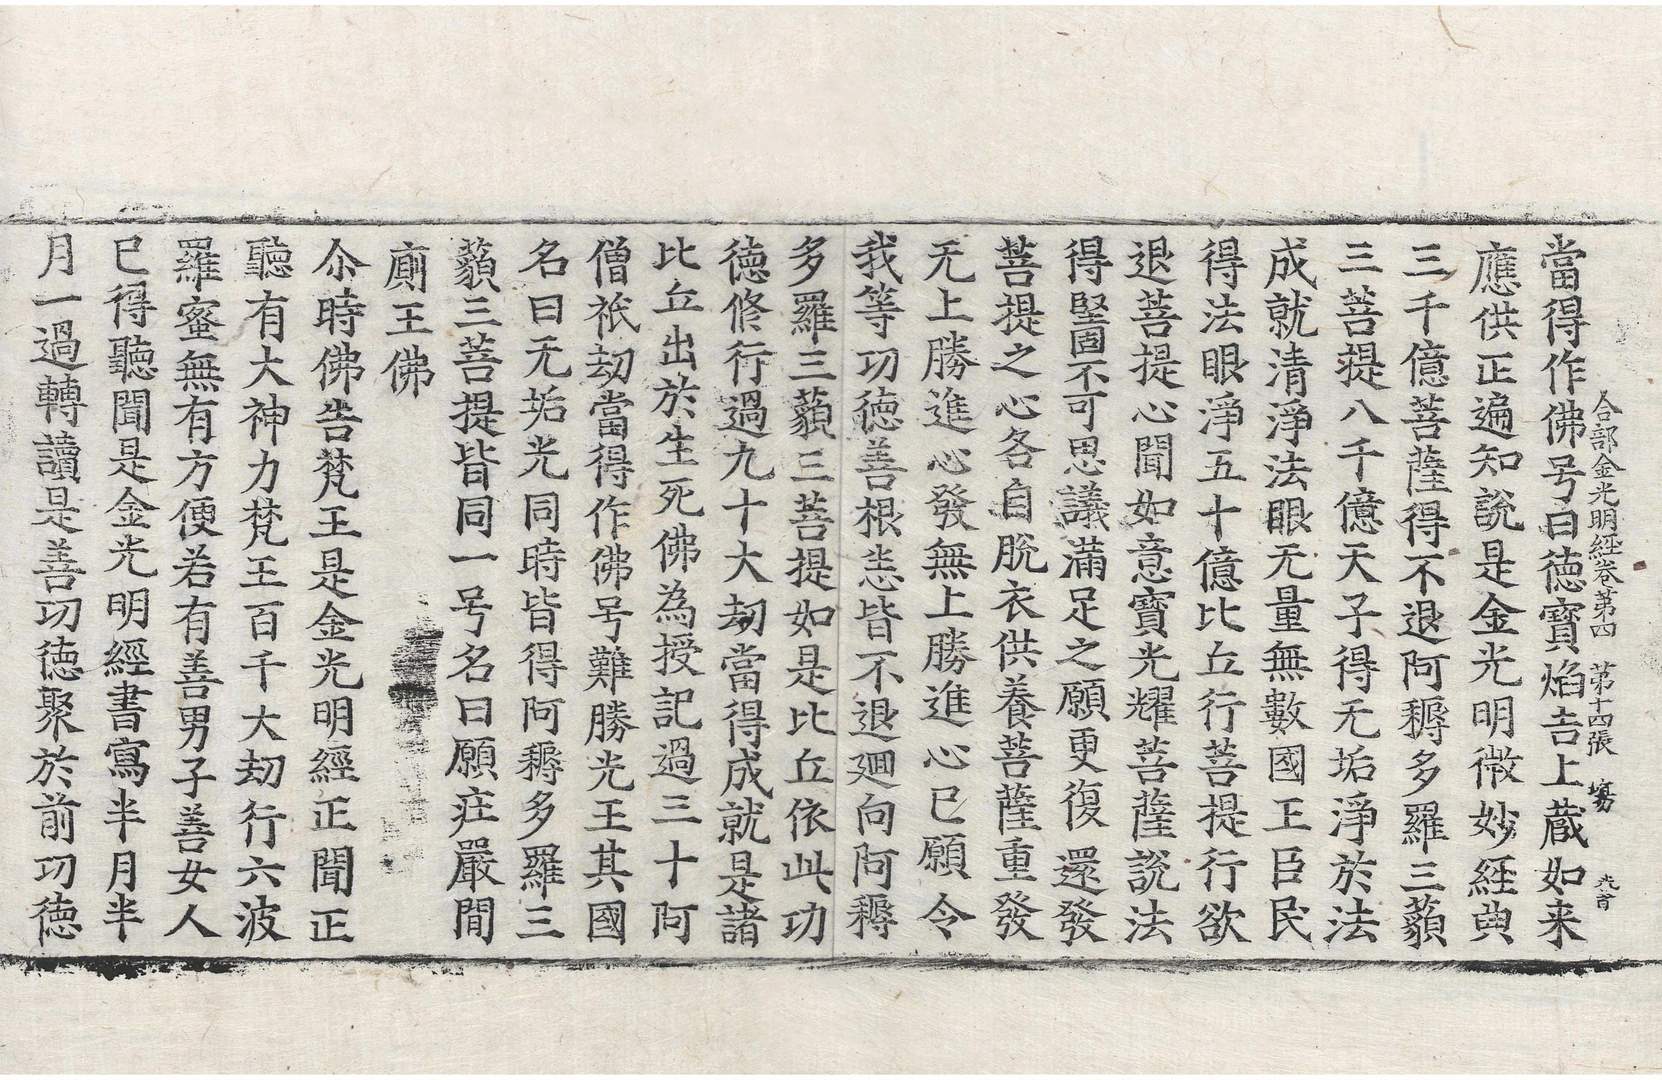 合部金光明經卷第四 第十四張
當得作佛号曰德寶焰吉上蔵如来
應供正遍知說是金光明微妙經典
三千億菩薩得不退阿耨多羅三藐
三菩提八千億天子得无垢淨於法
成就清淨法眼无量無數國王臣民
得法眼淨五十億比丘行菩提行欲
退菩提心聞如意寶光耀菩薩說法
得堅固不可思議滿足之願更復還發
菩提之心各自脫衣供養菩薩重發
无上勝進心發無上勝進心已願令
我等功德善根悉皆不退廻向阿耨
多羅三藐三菩提如是比丘依此功
德修行過九十大劫當得成就是諸
比丘出於生死佛為授記過三十阿
僧祇劫當得作佛号難勝光王其國
名曰无垢光同時皆得阿耨多羅三
藐三菩提皆同一号名曰願庄嚴間
廁王佛
尒時佛告梵王是金光明經正聞正
聽有大神力梵王百千大劫行六波
羅蜜無有方便若有善男子善女人
已得聽聞是金光明經書寫半月半
月一過轉讀是善功德聚於前功德